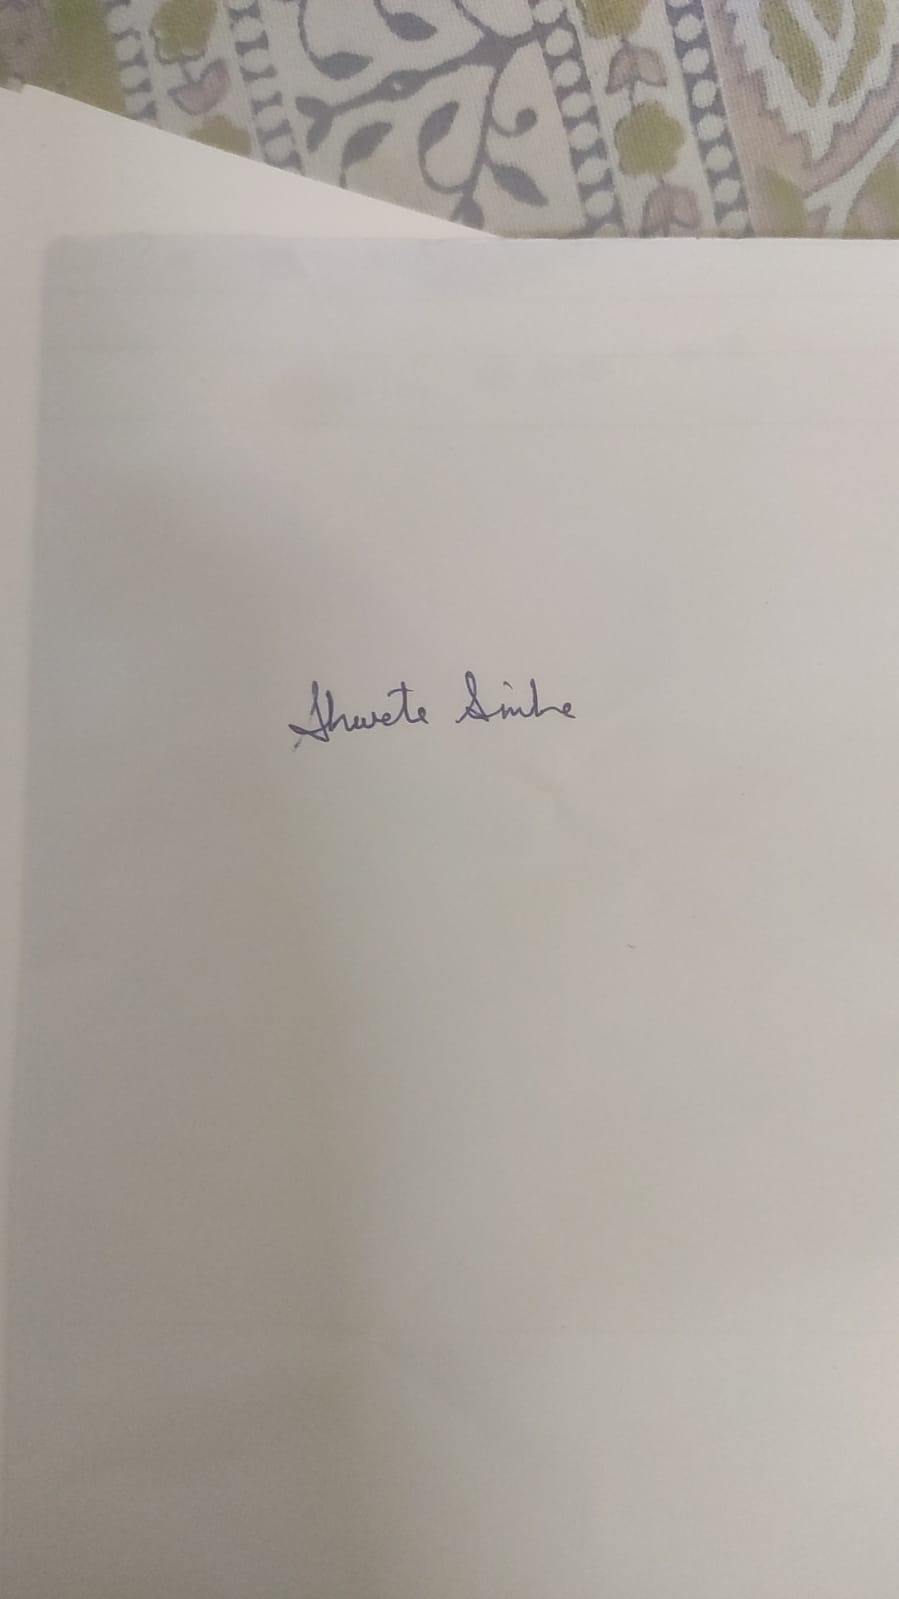 Shweta Sinha